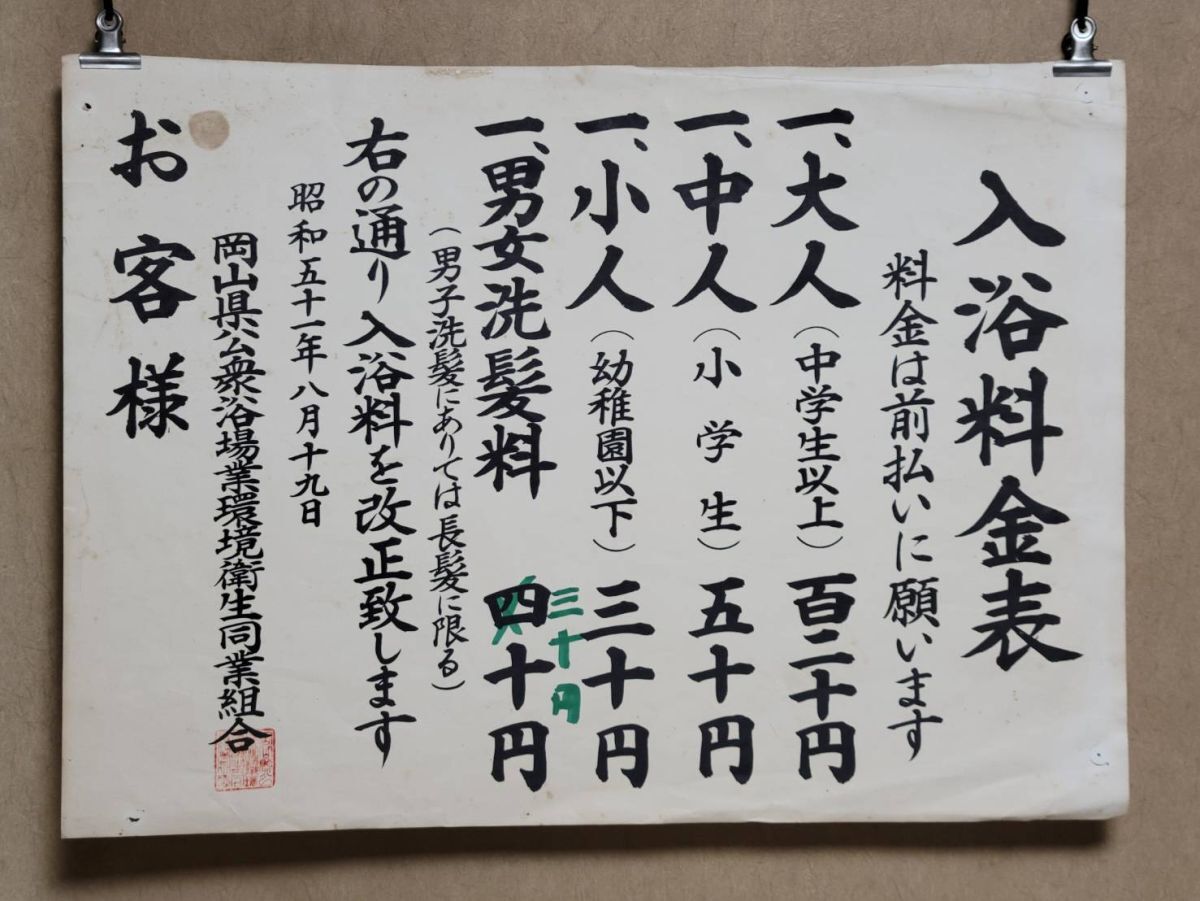 入浴料金表
料金は前払いに願います
一、大人（中学生以上）百二十円
一、中人（小学生）五十円
一、小人（幼稚園以下）三十円
一、男女洗髪料 四十円
三十円
（男子洗髪にありては長髪に限る）
右の通り入浴料を改正致します
昭和五十一年八月十九日
岡山県公衆浴場業環境衛生同業組合
お客様